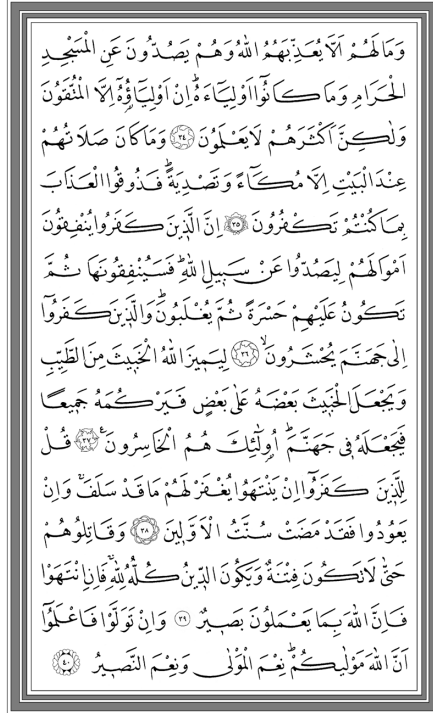 وَمَا لَهُمْ اَلَّا يُعَذِّبَهُمُ اللّٰهُ وَهُمْ يَصُدُّونَ عَنِ الْمَسْجِدِ
الْحَرَامِ وَمَا كَانُٓوا اَوْلِيَٓاءَهُۜ اِنْ اَوْلِيَٓاؤُ۬هُٓ اِلَّا الْمُتَّقُونَ
وَلٰكِنَّ اَكْثَرَهُمْ لَا يَعْلَمُونَ ﴿٣٤﴾ وَمَا كَانَ صَلَاتُهُمْ
عِنْدَ الْبَيْتِ اِلَّا مُكَٓاءً وَتَصْدِيَةًۜ فَذُوقُوا الْعَذَابَ
بِمَا كُنْتُمْ تَكْفُرُونَ ﴿٣٥﴾ اِنَّ الَّذ۪ينَ كَفَرُوا يُنْفِقُونَ
اَمْوَالَهُمْ لِيَصُدُّوا عَنْ سَب۪يلِ اللّٰهِۜ فَسَيُنْفِقُونَهَا ثُمَّ
تَكُونُ عَلَيْهِمْ حَسْرَةً ثُمَّ يُغْلَبُونَۜ وَالَّذ۪ينَ كَفَرُٓوا
اِلٰى جَهَنَّمَ يُحْشَرُونَۙ ﴿٣٦﴾ لِيَم۪يزَ اللّٰهُ الْخَب۪يثَ مِنَ الطَّيِّبِ
وَيَجْعَلَ الْخَب۪يثَ بَعْضَهُ عَلٰى بَعْضٍ فَيَرْكُمَهُ جَم۪يعًا
فَيَجْعَلَهُ ف۪ي جَهَنَّمَۜ اُو۬لٰٓئِكَ هُمُ الْخَاسِرُونَ۟ ﴿٣٧﴾ قُلْ
لِلَّذ۪ينَ كَفَرُٓوا اِنْ يَنْتَهُوا يُغْفَرْ لَهُمْ مَا قَدْ سَلَفَۚ وَاِنْ
يَعُودُوا فَقَدْ مَضَتْ سُنَّتُ الْاَوَّل۪ينَ ﴿٣٨﴾ وَقَاتِلُوهُمْ
حَتّٰى لَا تَكُونَ فِتْنَةٌ وَيَكُونَ الدّ۪ينُ كُلُّهُ لِلّٰهِۚ فَاِنِ انْتَهَوْا
فَاِنَّ اللّٰهَ بِمَا يَعْمَلُونَ بَص۪يرٌ ﴿٣٩﴾ وَاِنْ تَوَلَّوْا فَاعْلَمُٓوا
اَنَّ اللّٰهَ مَوْلٰيكُمْۜ نِعْمَ الْمَوْلٰى وَنِعْمَ النَّص۪يرُ ﴿٤٠﴾